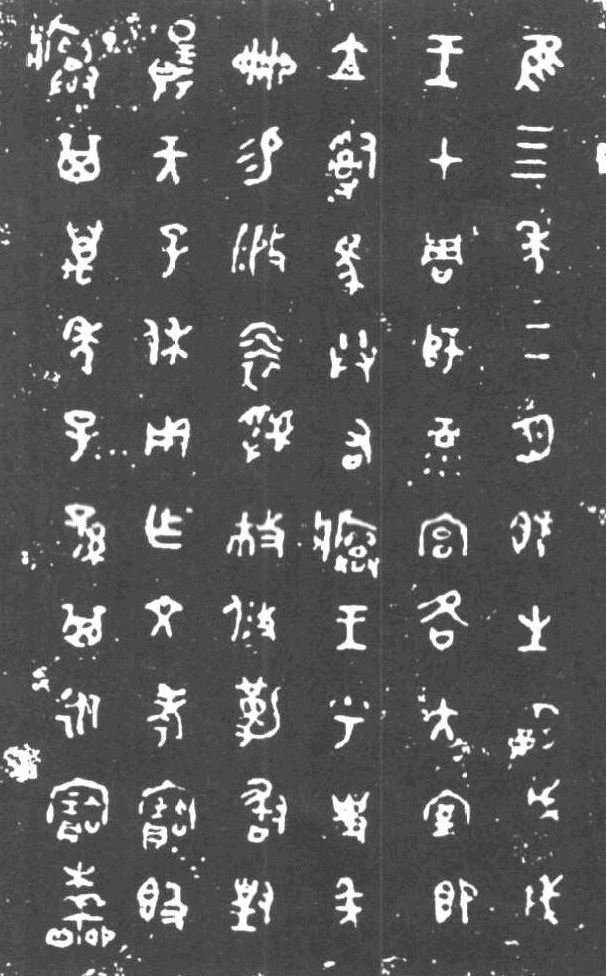 隹亖年二月既生霸戊戌
王才周師彔宮各大室即
立𤔲馬共右𤼈王乎史年
冊易虢攸勒敢對
揚天子休用乍文考寶𣪘
𤼈其萬年子孫其永寶木羊冊